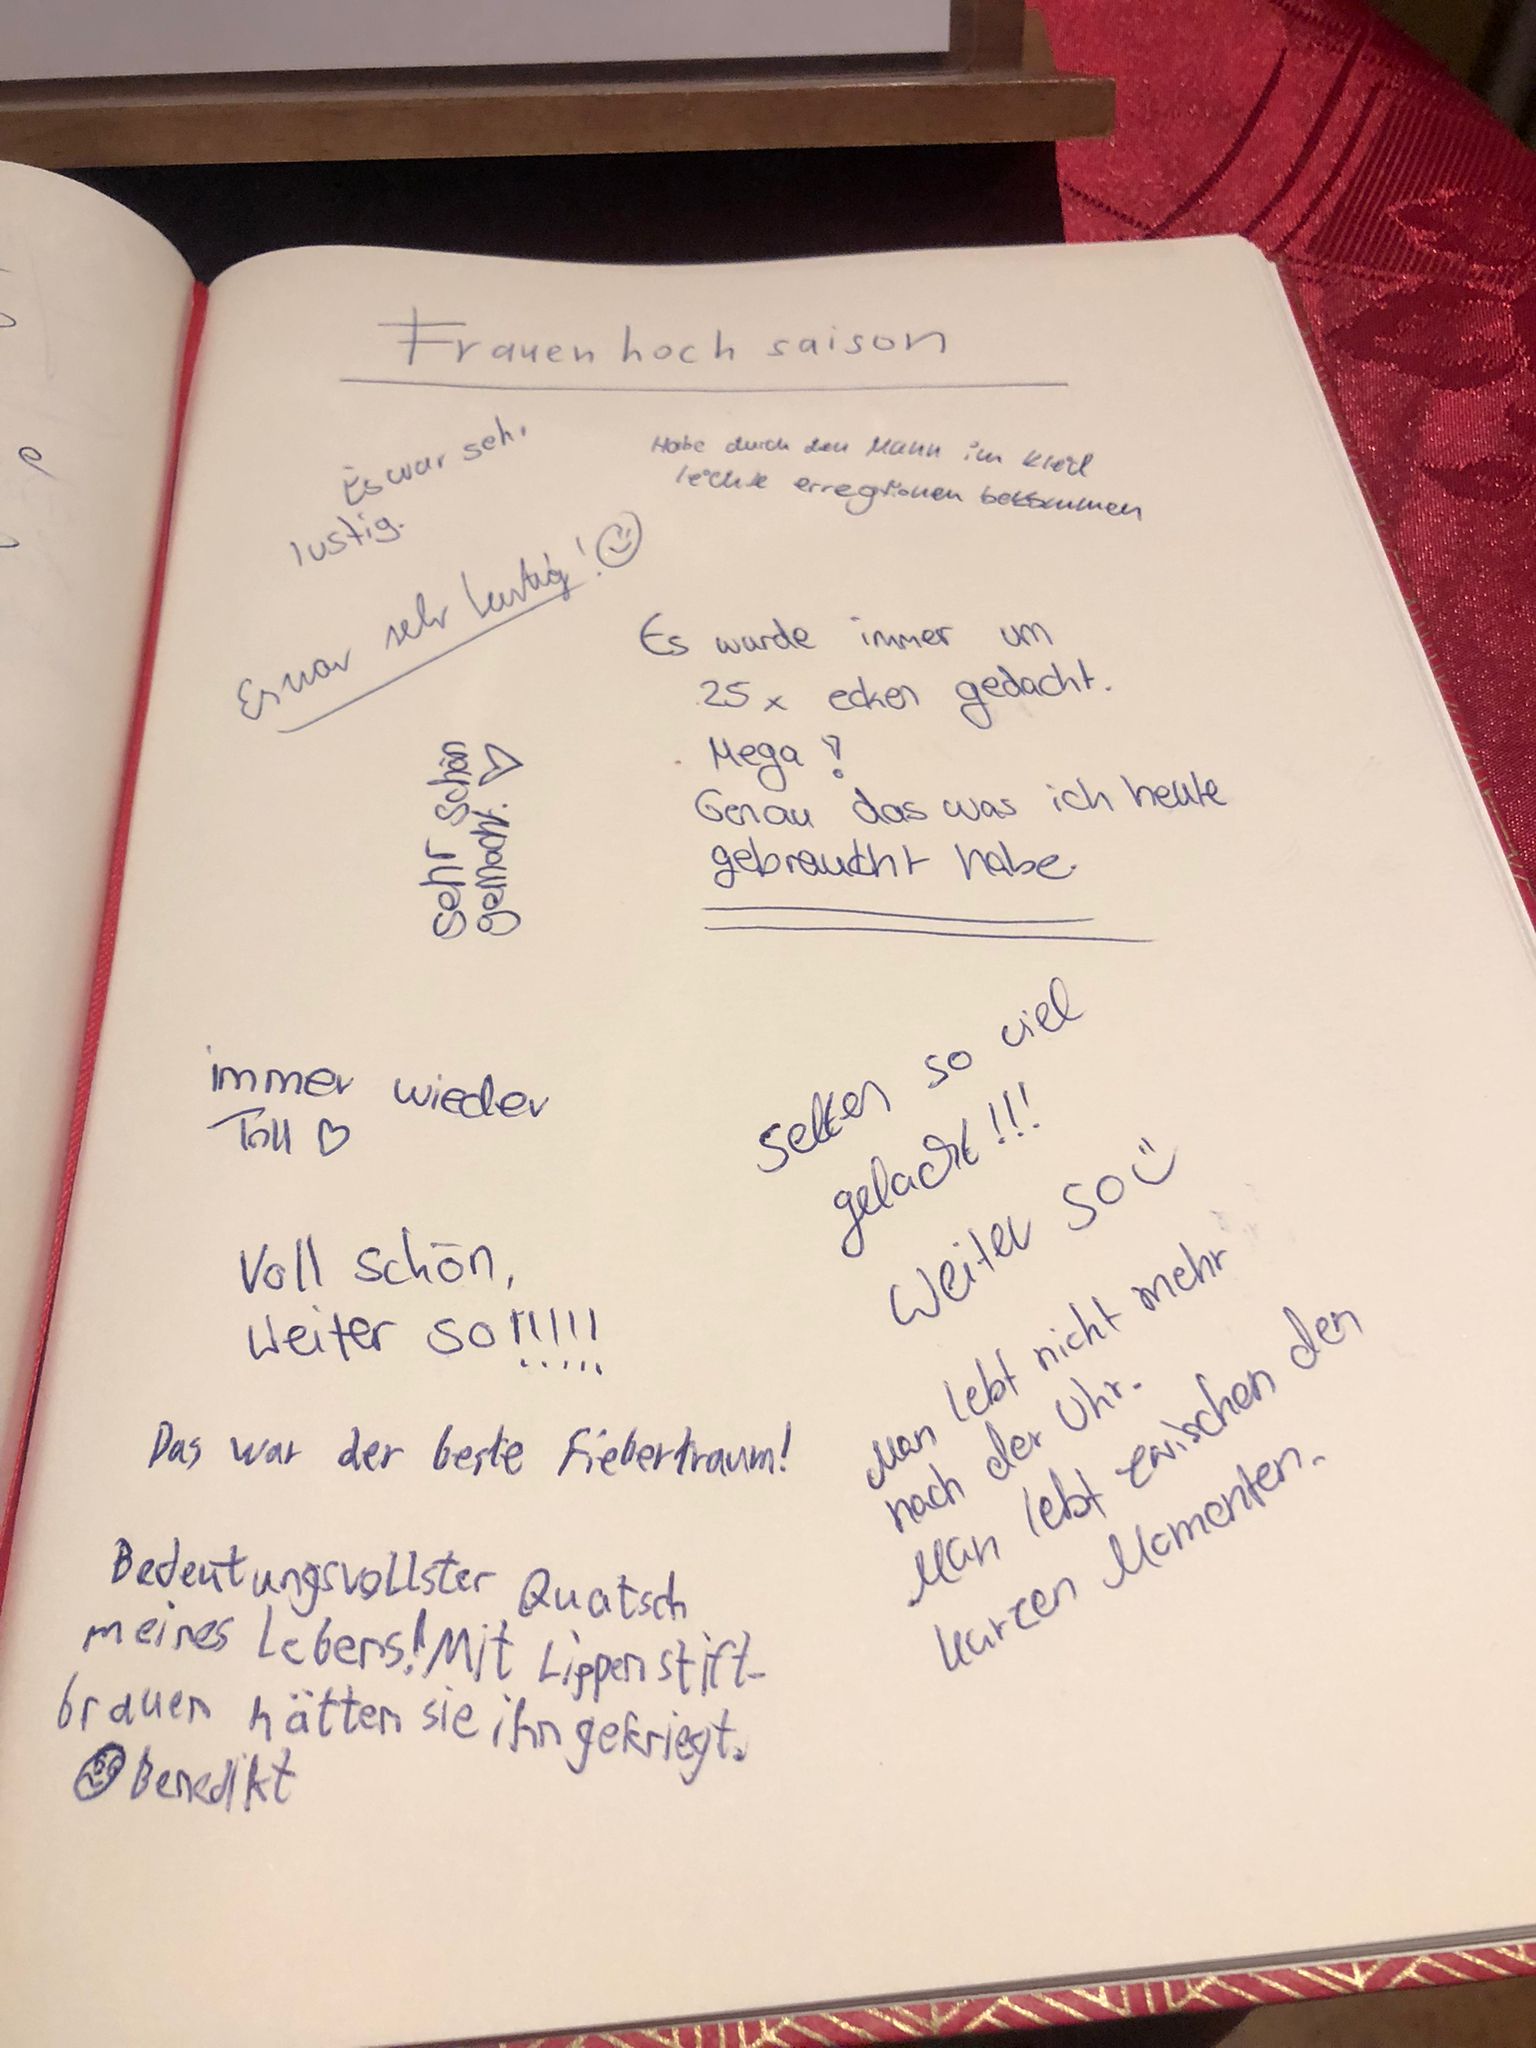 Frauenhochsaison
Es war seh.
lustig.
Habe durch den Mann im Kleid
leichte erregtionen bekommen
Es war sehr lustig!
Es wurde immer um
25 x ecken gedacht.
Mega!
Genau das was ich heute
gebraucht habe.
Sehr schön
gemacht.
immer wieder
Toll
Selten so viel
gelacht!!!
Weiter so
Voll schön,
Weiter so!!!!!
Man lebt nicht mehr
nach der Uhr.
Man lebt zwischen den
kurzen Momenten.
Das war der beste Fiebertraum!
Bedeutungsvollster Quatsch
meines Lebens! Mit Lippenstift-
brauen hätten sie ihn gekriegt.
Benedikt